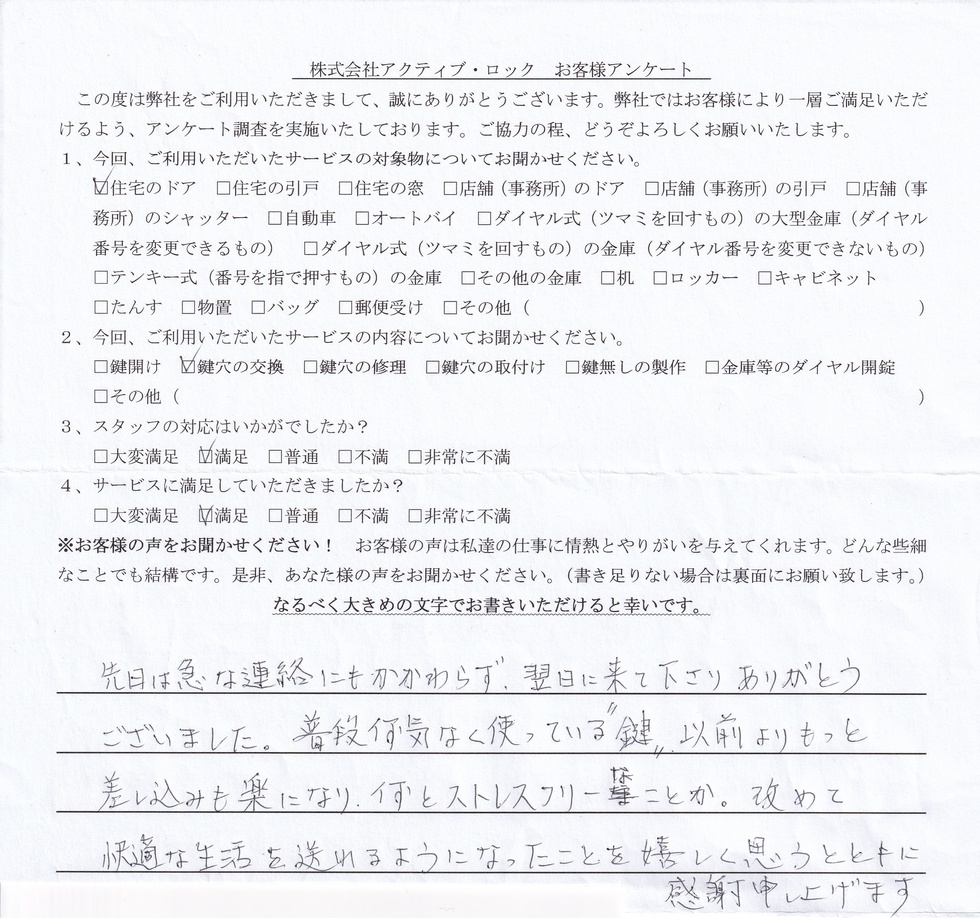 株式会社アクティブ・ロック　お客様アンケート
この度は弊社をご利用いただきまして、誠にありがとうございます。弊社ではお客様により一層ご満足いただ
けるよう、アンケート調査を実施いたしております。ご協力の程、どうぞよろしくお願いいたします。
１、今回、ご利用いただいたサービスの対象物についてお聞かせください。
☑住宅のドア　□住宅の引戸　□住宅の窓　□店舗（事務所）のドア　□店舗（事務所）の引戸　□店舗（事
務所）のシャッター　□自動車　□オートバイ　□ダイヤル式（ツマミを回すもの）の大型金庫（ダイヤル
番号を変更できるもの）　□ダイヤル式（ツマミを回すもの）の金庫（ダイヤル番号を変更できないもの）
□テンキー式（番号を指で押すもの）の金庫　□その他の金庫　□机　□ロッカー　□キャビネット
□たんす　□物置　□バッグ　□郵便受け　□その他（　　　）
２、今回、ご利用いただいたサービスの内容についてお聞かせください。
□鍵開け　☑鍵穴の交換　□鍵穴の修理　□鍵穴の取付け　□鍵無しの製作　□金庫等のダイヤル開錠
□その他（　　　）
３、スタッフの対応はいかがでしたか？
□大変満足　☑満足　□普通　□不満　□非常に不満
４、サービスに満足していただきましたか？
□大変満足　☑満足　□普通　□不満　□非常に不満
※お客様の声をお聞かせください！　お客様の声は私達の仕事に情熱とやりがいを与えてくれます。どんな些細
なことでも結構です。是非、あなた様の声をお聞かせください。（書き足りない場合は裏面にお願い致します。）
なるべく大きめの文字でお書きいただけると幸いです。
先日は急な連絡にもかかわらず、翌日に来て下さりありがとう
ございました。普段何気なく使っている〝鍵〟、以前よりもっと
差し込みも楽になり、何とストレスフリーなことか。改めて
快適な生活を送れるようになったことを嬉しく思うとともに
感謝申し上げます